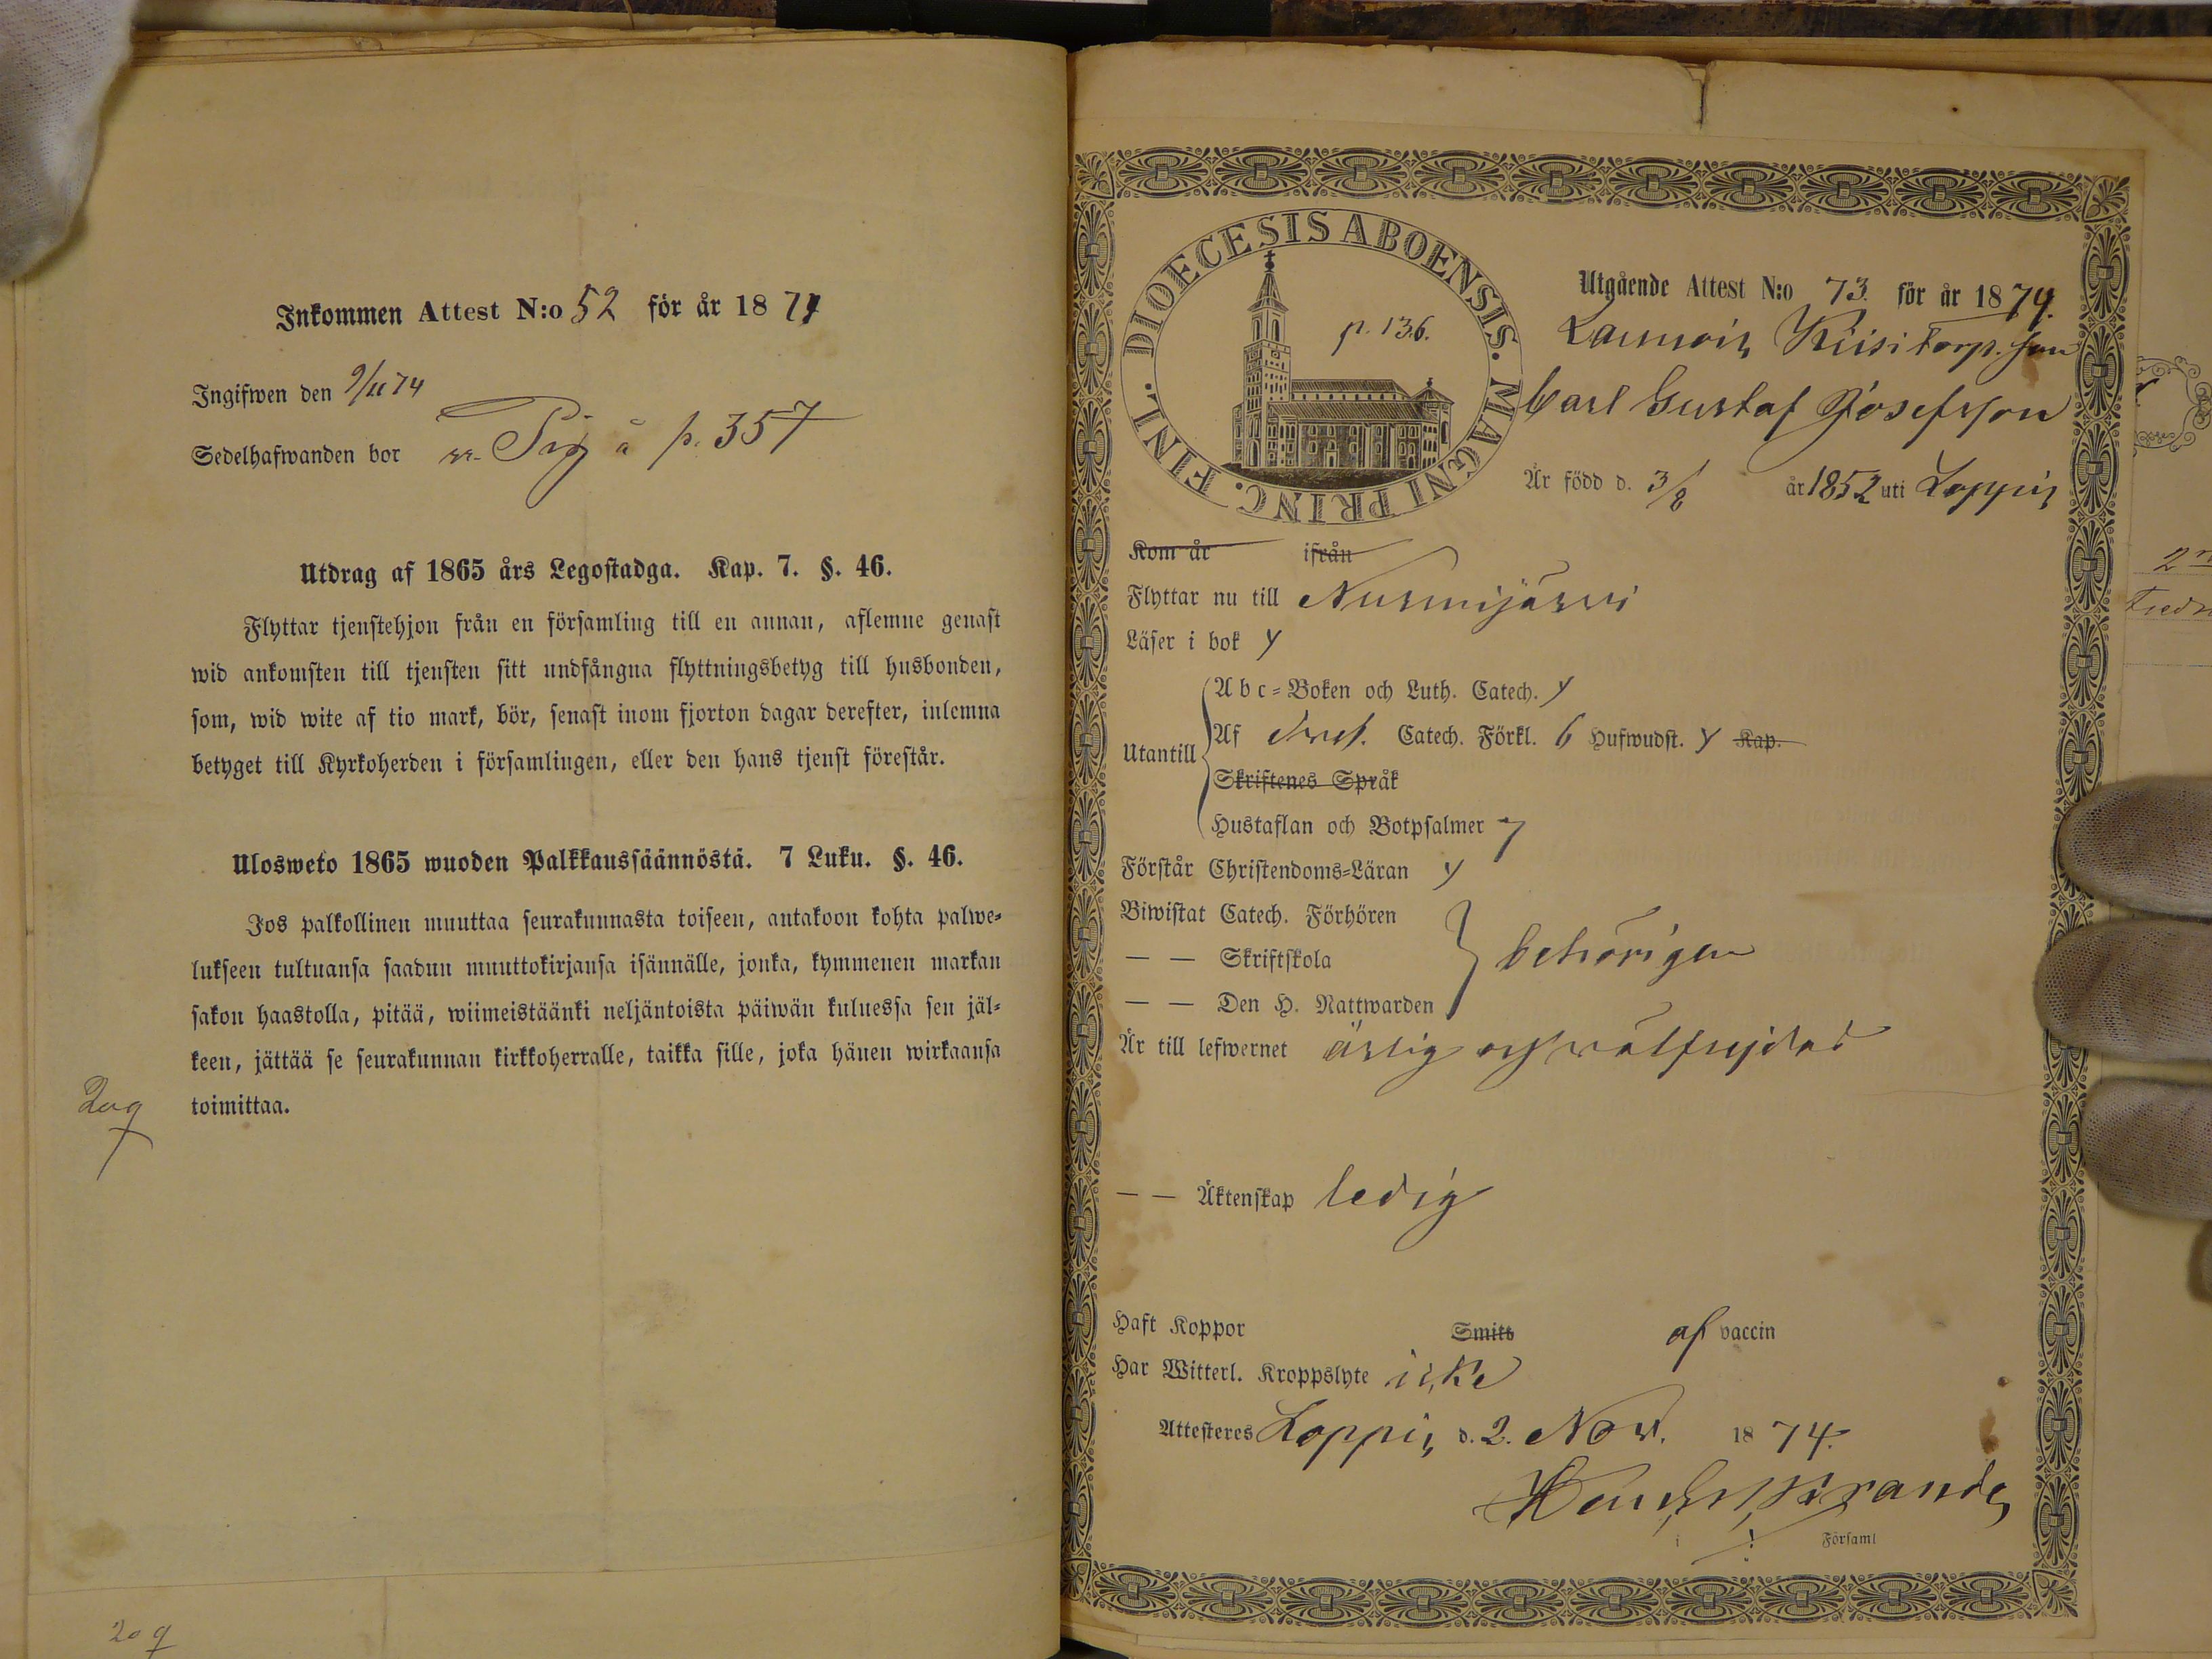 Inkommen Attest N:o 52 för år 1874
Ingifwen den 9/11 74
Sedelhafwanden bor p. 357
Utdrag af 1865 års Legostadga. Kap. 7. §. 46.
Flyttar tjenstehjon från en församling till en annan, aflemne genast
wid ankomsten till tjensten sitt undfångna flyttningsbetyg till husbonden,
som, wid wite af tio mark, bör, senast inom fjorton dagar derefter, inlemna
betyget till Kyrkoherden i församlingen, eller den hans tjenst förestår.
Ulosweto 1865 wuoden Palkkaussäännöstä. 7 Luku. §. 46.
Jos palkollinen muuttaa seurakunnasta toiseen, antakoon kohta palwe-
lukseen tultuansa saadun muuttokirjansa isännälle, jonka, kymmenen markan
sakon haastolla, pitää, wiimeistäänki neljäntoista päiwän kuluessa sen jäl-
keen, jättää se seurakunnan kirkkoherralle, taikka sille, joka hänen wirkaansa
toimittaa.
DIOECESIS ABOENSIS. MAGNI PRINC. FINL.
p. 136.
Utgående Attest N:o 73. för år 1874.
Torp. son
Carl Gustaf Josefsson
Är född d. 3/8 år 1852 uti Loppis
Kom år ifrån
Flyttar nu till Nurmijärvi
Läser i bok y
Utantill
Abc-Boken och Luth. Catech. y
Af Catech. Förkl. 6 Hufwudst. y Kap.
Skriftenes Språk
Hustaflan och Botpsalmer y
Förstår Christendoms-Läran y
Biwistat Catech. Förhören
— — Skriftskola behörigen
— — Den H. Nattwarden
Är till lefwernet ärlig och välfrejdad
— — Äktenskap ledig
Haft Koppor Smitt af vaccin
Har Witterl. Kroppslyte icke
Attesteres Loppis d. 2. Nov. 1874.
i Församl